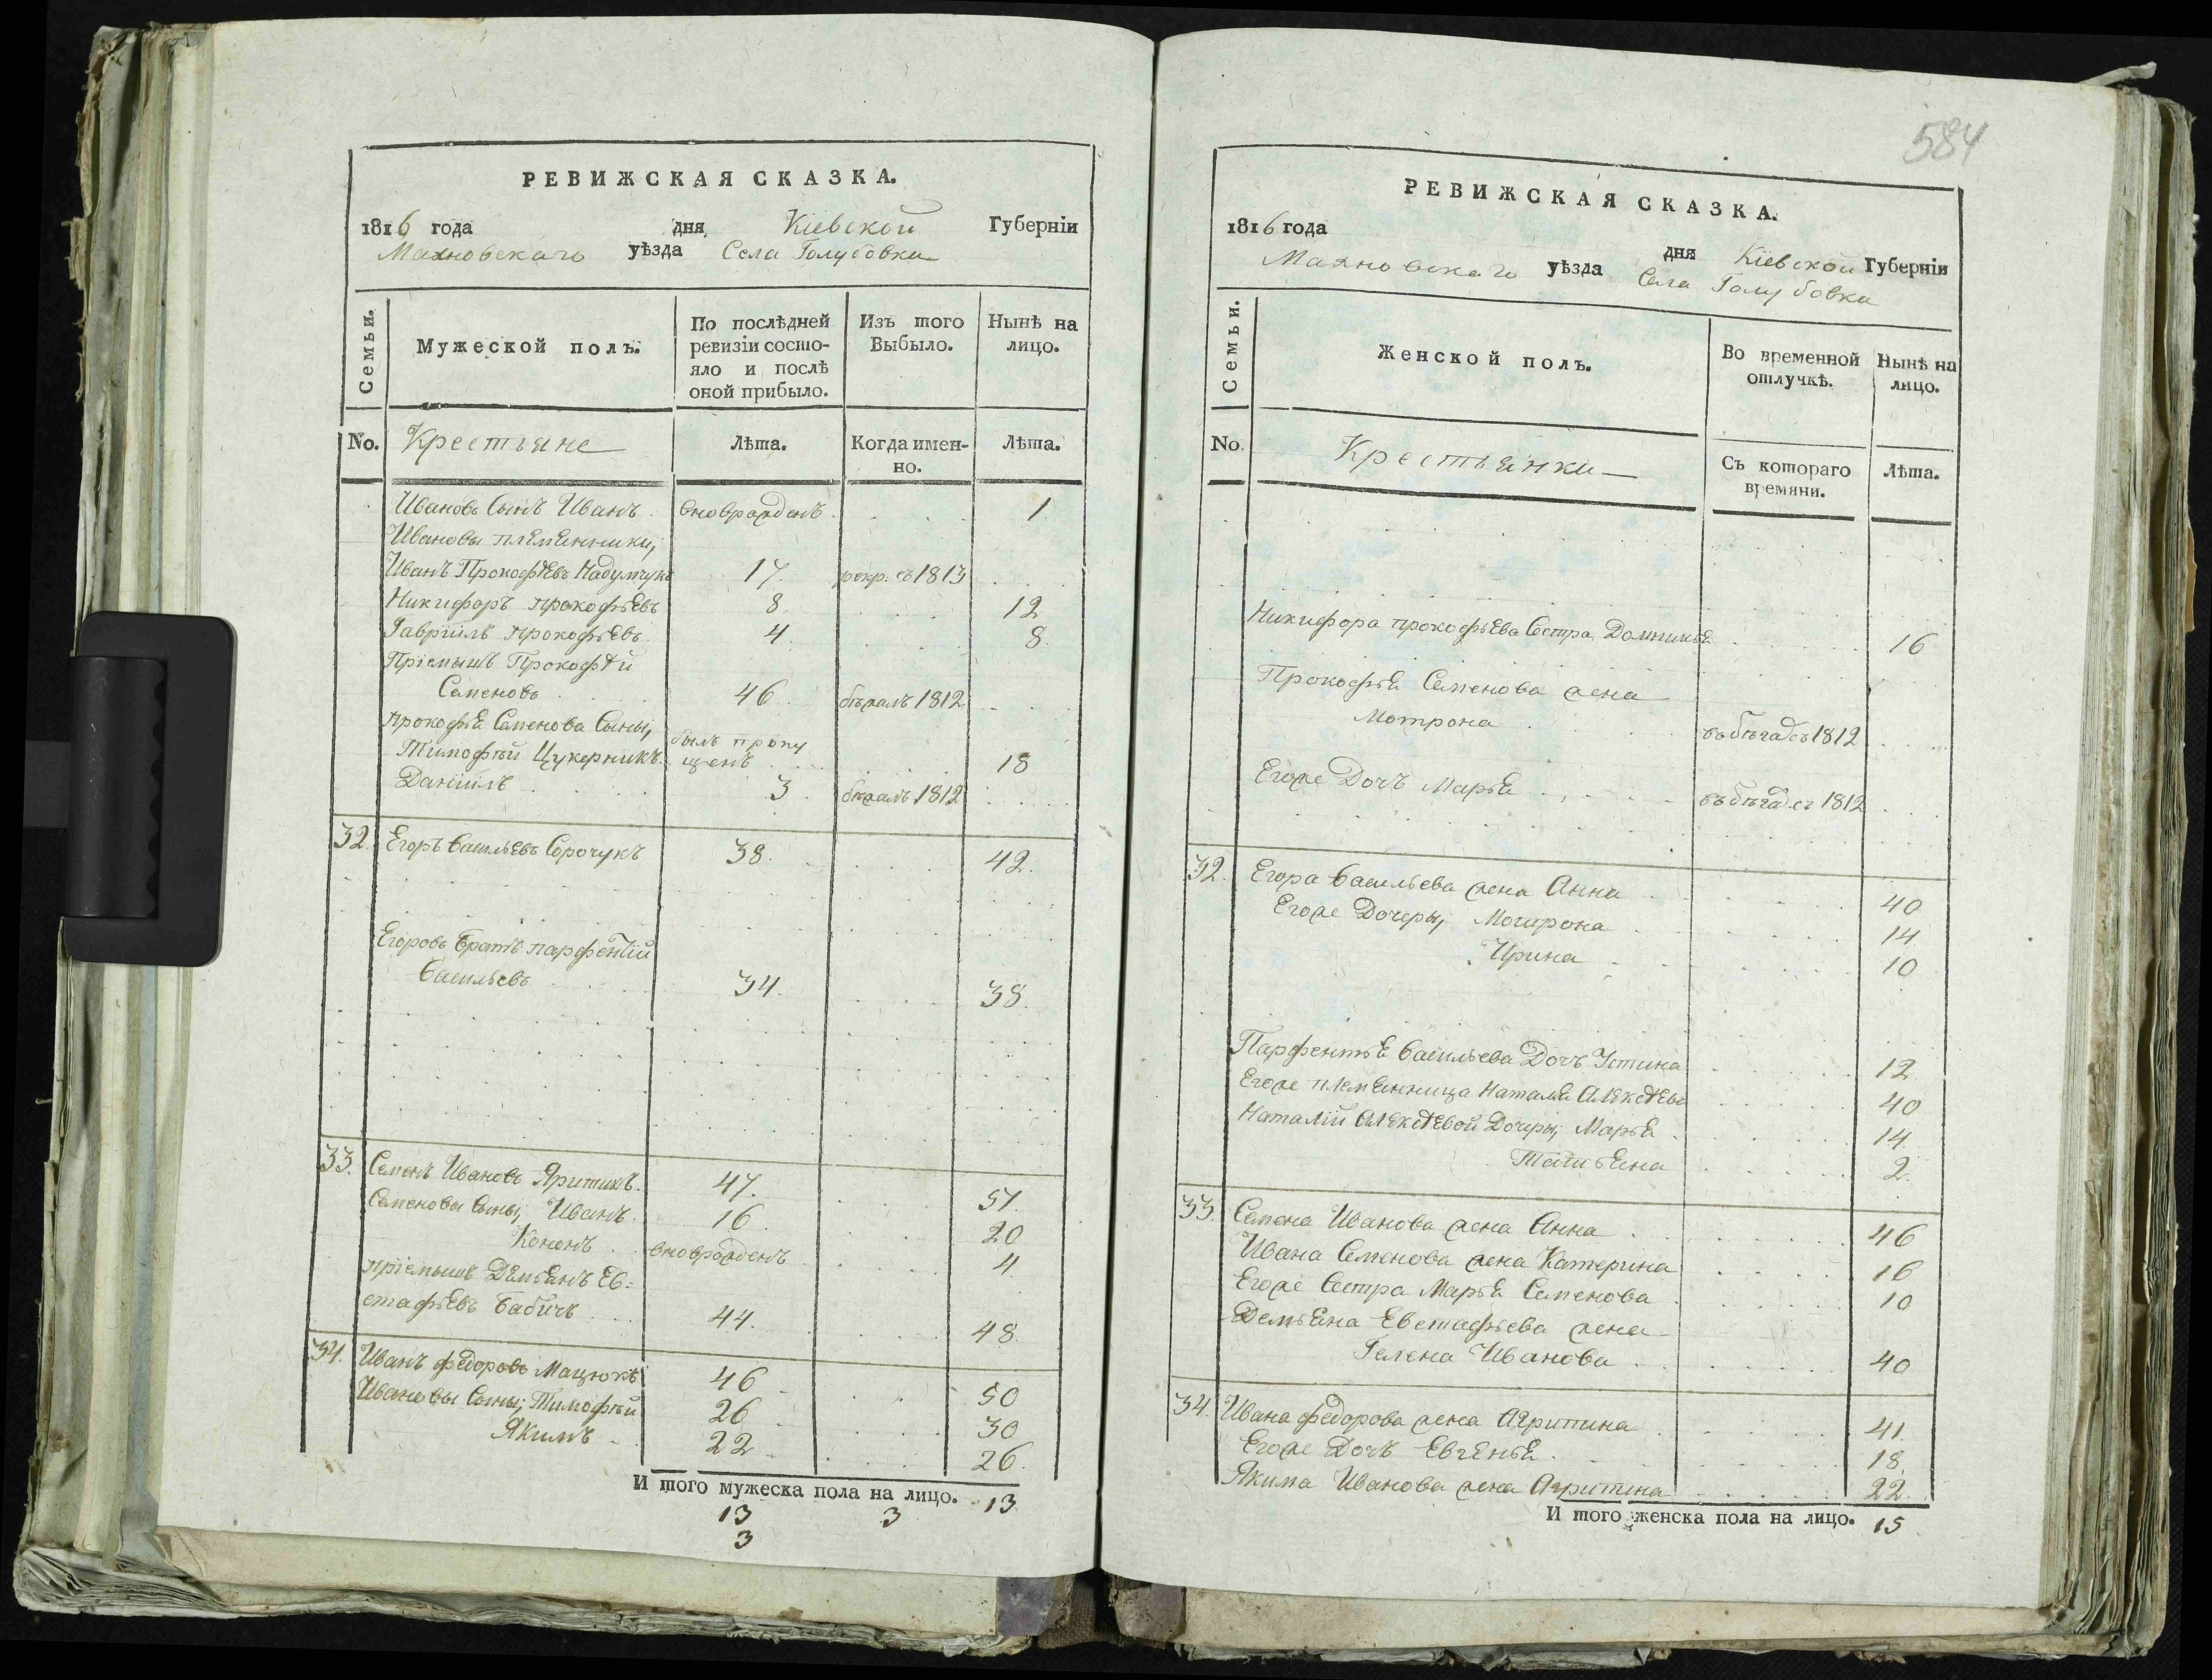 РЕВИЖСКАЯ СКАЗКА.
1816 года дня Кіевской Губерніи
Махновскаго уѣзда Села Голубовки
Семьи. Мужеской полъ. По послѣдней ревизіи состояло и послѣ оной прибыло. Изъ того Выбыло. Нынѣ на лицо.
No. Крестьяне Лѣта. Когда именно. Лѣта.
Ивановъ Сынъ Иванъ вновьрожденъ 1
Ивановы племянники;
Иванъ Прокофѣевъ 17. рекр: съ 1813
Никифоръ прокофьевъ 8. 12
Гавріилъ прокофьевъ 4. 8.
Пріемышъ Прокофѣй
Семеновъ 46 бѣжалъ 1812
прокофья Семенова Сыны,
Тимофѣй Цукерникъ былъ пропущенъ 18
Даніилъ 3 бѣжалъ 1812
32. Егоръ Васильевъ Сорочукъ 38. 42.
Егоровъ братъ парфентій
Васильевъ 34. 38.
33. Семенъ Ивановъ Яритикъ. 47. 51.
Семеновы Сыны; Иванъ 16 20
Кононъ вновьрожденъ 4.
пріемышъ Демьянъ Ев=
стафьевъ Бабичъ 44. 48.
34. Иванъ федоровъ Мацюкъ 46 50
Ивановы Сыны; Тимофѣй 26 30
Якимъ 22 26.
И того мужеска пола на лицо. 13
13 3
3
584
РЕВИЖСКАЯ СКАЗКА.
1816 года дня Кіевской Губерніи
Махновскаго уѣзда Села Голубовки
Семьи. Женской полъ. Во временной отлучкѣ. Нынѣ на лицо.
No. Крестьянки Съ котораго времяни. Лѣта.
Никифора прокофьева Сестра Домникія 16
Прокофья Семенова жена
Мотрона въ бѣгахъ съ 1812
Егоже Дочь Марья въ бѣгах съ 1812
32. Егора Васильева жена Анна 40
Егоже Дочери; Мотрона 14
Ирина 10
Парфентья Васильева Дочь Устина 12
Егоже племянница Наталья Алексѣева 40
Наталій Алексѣевой Дочери; Марья 14
Татьяна 2.
33. Семена Иванова жена Анна 46
Ивана Семенова жена Катерина 16
Егоже Сестра Марья Семенова 10
Демьяна Евстафьева жена
Гелена Иванова 40
34. Ивана федорова жена Агрипина 41.
Егоже Дочь Евгенья 18.
Якима Иванова жена Агрипина 22.
И того женска пола на лицо. 15